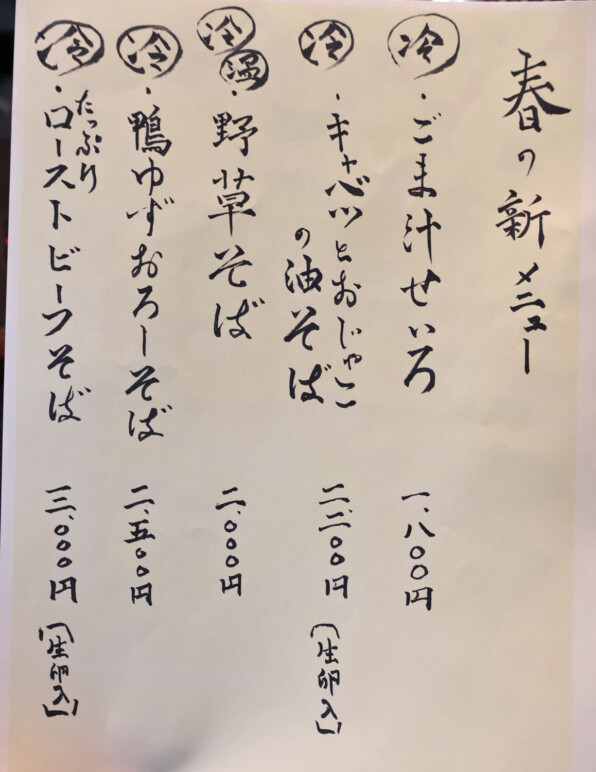 春の新メニュー
冷・ごま汁せいろ 一、八〇〇円
冷・キャベツとおじゃこ
の油そば 二、二〇〇円(生卵入)
冷温・野草そば 二、〇〇〇円
冷・鴨ゆずおろしそば 二、五〇〇円
冷・たっぷり
ローストビーフそば 三、〇〇〇円(生卵入)